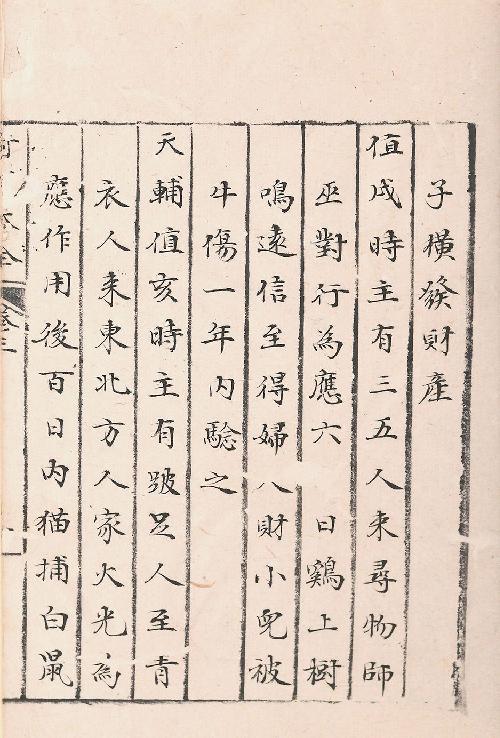 子横發財產
值戌時主有三五人來尋物師
巫對行為應六 日鷄上樹
鳴遠信至得婦人財小兒被
牛傷一年内驗之
天輔值亥時主有跛足人至青
衣人来東北方人家火光為
應作用後百日内猫捕白鼠